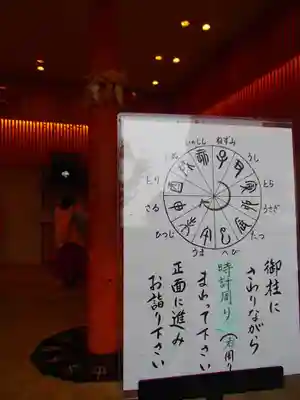 ねずみ
うし
とら
うさぎ
たつ
へび
うま
ひつじ
さる
とり
いぬ
いのしし
御柱に
さわりながら
時計周り(右周り
まわって下さい
正面に進み
お詣り下さい